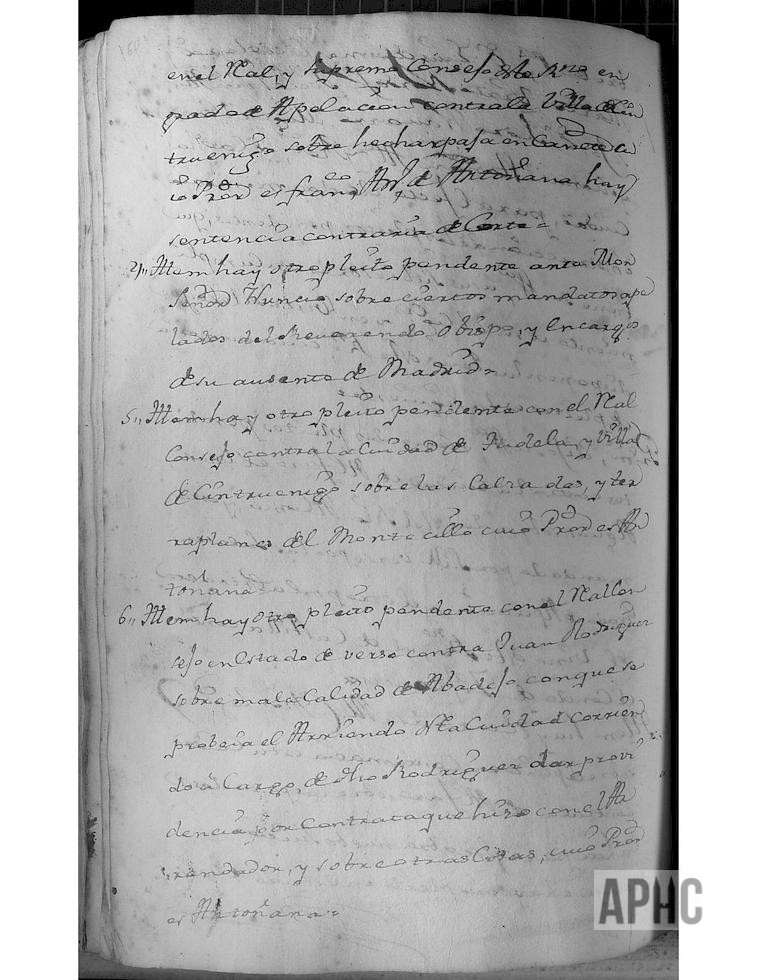 en el Ral, y Supremo Consejo deste Rno en
grado de Apelacion contra la Villa de Cin
truenigo sobre hechar paja en Cañete
cuio Pror es franco Anto de Antoñana, hay
sentencia contraria de Corte =
4,, Item hay otro pleito pendente ante Mon
señor Nuncio sobre ciertos mandatos ape
lados del Reverendo Obispo, y Encargos
de su ausente de Madrid =
5,, Item hay otro pleito pendente con el Ral
Consejo contra la Ciudad de Tudela, y Villa
de Cintruenigo sobre las Calzadas, y ter
raplanes del Montecillo cuio Pror es An
toñana
6,, Item hay otro pleito pendente con el Rall Con
sejo en Estado de verse contra Juan Rodriguez
sobre mala Calidad de Abadejo con que se
probeia el Arriendo Nta Ciudad corrien
do a Cargo, de dho Rodriguez dar provi
dencia, por Contrata que hizo con el Ar
rendador, y sobre otras Cosas, cuio Pror
es Antoñana =
APHC